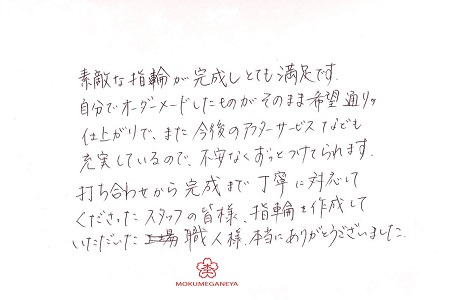 素敵な指輪が完成しとても満足です.
自分でオーダーメードしたものがそのまま希望通りの
仕上がりで、また今後のアフターサービスなども
充実しているので、不安なくずっとつけてられます.
打ち合わせから完成まで丁寧に対応して
くださったスタッフの皆様、指輪を作成して
いただいた 職人様、本当にありがとうございました.
MOKUMEGANEYA